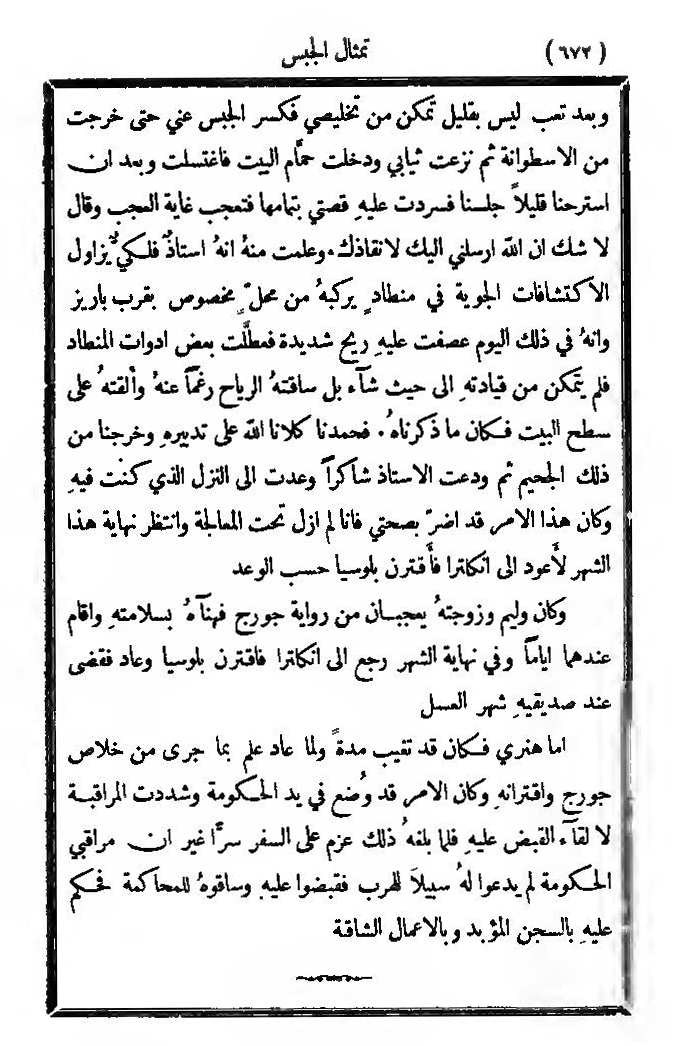 (٦٧٢) تمثال الجبس
وبعد تعب ليس بقليل تمكن من تخليصي فكسر الجبس عني حتى خرجت
من الاسطوانة ثم نزعت ثيابي ودخلت حمَّام البيت فاغتسلت وبعد ان
استرحنا قليلاً جلسنا فسردت عليهِ قصتي بتمامها فتعجب غاية العجب وقال
لا شك ان الله ارسلني اليك لانقاذك. وعلمت منهُ انهُ استاذٌ فلكيٌّ يزاول
الاكتشافات الجوية في منطادٍ يركبهُ من محلٍّ مخصوص بقرب باريز
وانهُ في ذلك اليوم عصفت عليهِ ريح شديدة فعطَّلت بعض ادوات المنطاد
فلم يتمكن من قيادتهِ الى حيث شآء بل ساقتهُ الرياح رغمًا عنهُ وألقتهُ على
سطح البيت فكان ما ذكرناهُ. فحمدنا كلانا الله على تدبيرهِ وخرجنا من
ذلك الجحيم ثم ودعت الاستاذ شاكرًا وعدت الى النزل الذي كنت فيهِ
وكان هذا الامر قد اضرّ بصحتي فانا لم ازل تحت المعالجة وانتظر نهاية هذا
الشهر لأعود الى انكلترا فأقترن بلوسيا حسب الوعد
وكان وليم وزوجتهُ يعجبان من رواية جورج فهنآهُ بسلامتهِ واقام
عندهما ايامًا وفي نهاية الشهر رجع الى انكلترا فاقترن بلوسيا وعاد فقضى
عند صديقيهِ شهر العسل
اما هنري فكان قد تغيب مدةً ولما عاد علم بما جرى من خلاص
جورج واقترانهِ وكان الامر قد وُضع في يد الحكومة وشددت المراقبة
لالقآء القبض عليهِ فلما بلغهُ ذلك عزم على السفر سرًّا غير ان مراقبي
الحكومة لم يدعوا لهُ سبيلاً للهرب فقبضوا عليهِ وساقوهُ للمحاكمة فحُكم
عليهِ بالسجن المؤبد وبالاعمال الشاقة